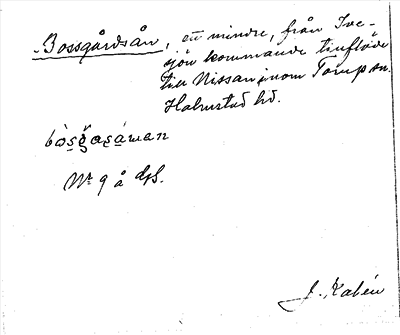 Bossgårdsån, ett mindre, från Tve-
sjön kommande tillflöde
till Nissan, inom Torup sn.
Halmstad hd.
Nr 9 å dsb.
J. Kalén